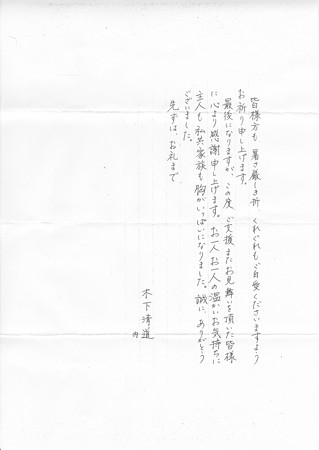 皆様方も 暑さ厳しき折 くれぐれもご自愛くださいますよう
お祈り申し上げます。
最後になりますが、この度 ご支援またお見舞いを頂いた皆様
に心より感謝申し上げます。お一人お一人の温かいお気持ちに
主人も 私共家族も胸がいっぱいになりました。誠に、ありがとう
ございました。
先ずは、お礼まで
木下清道
内